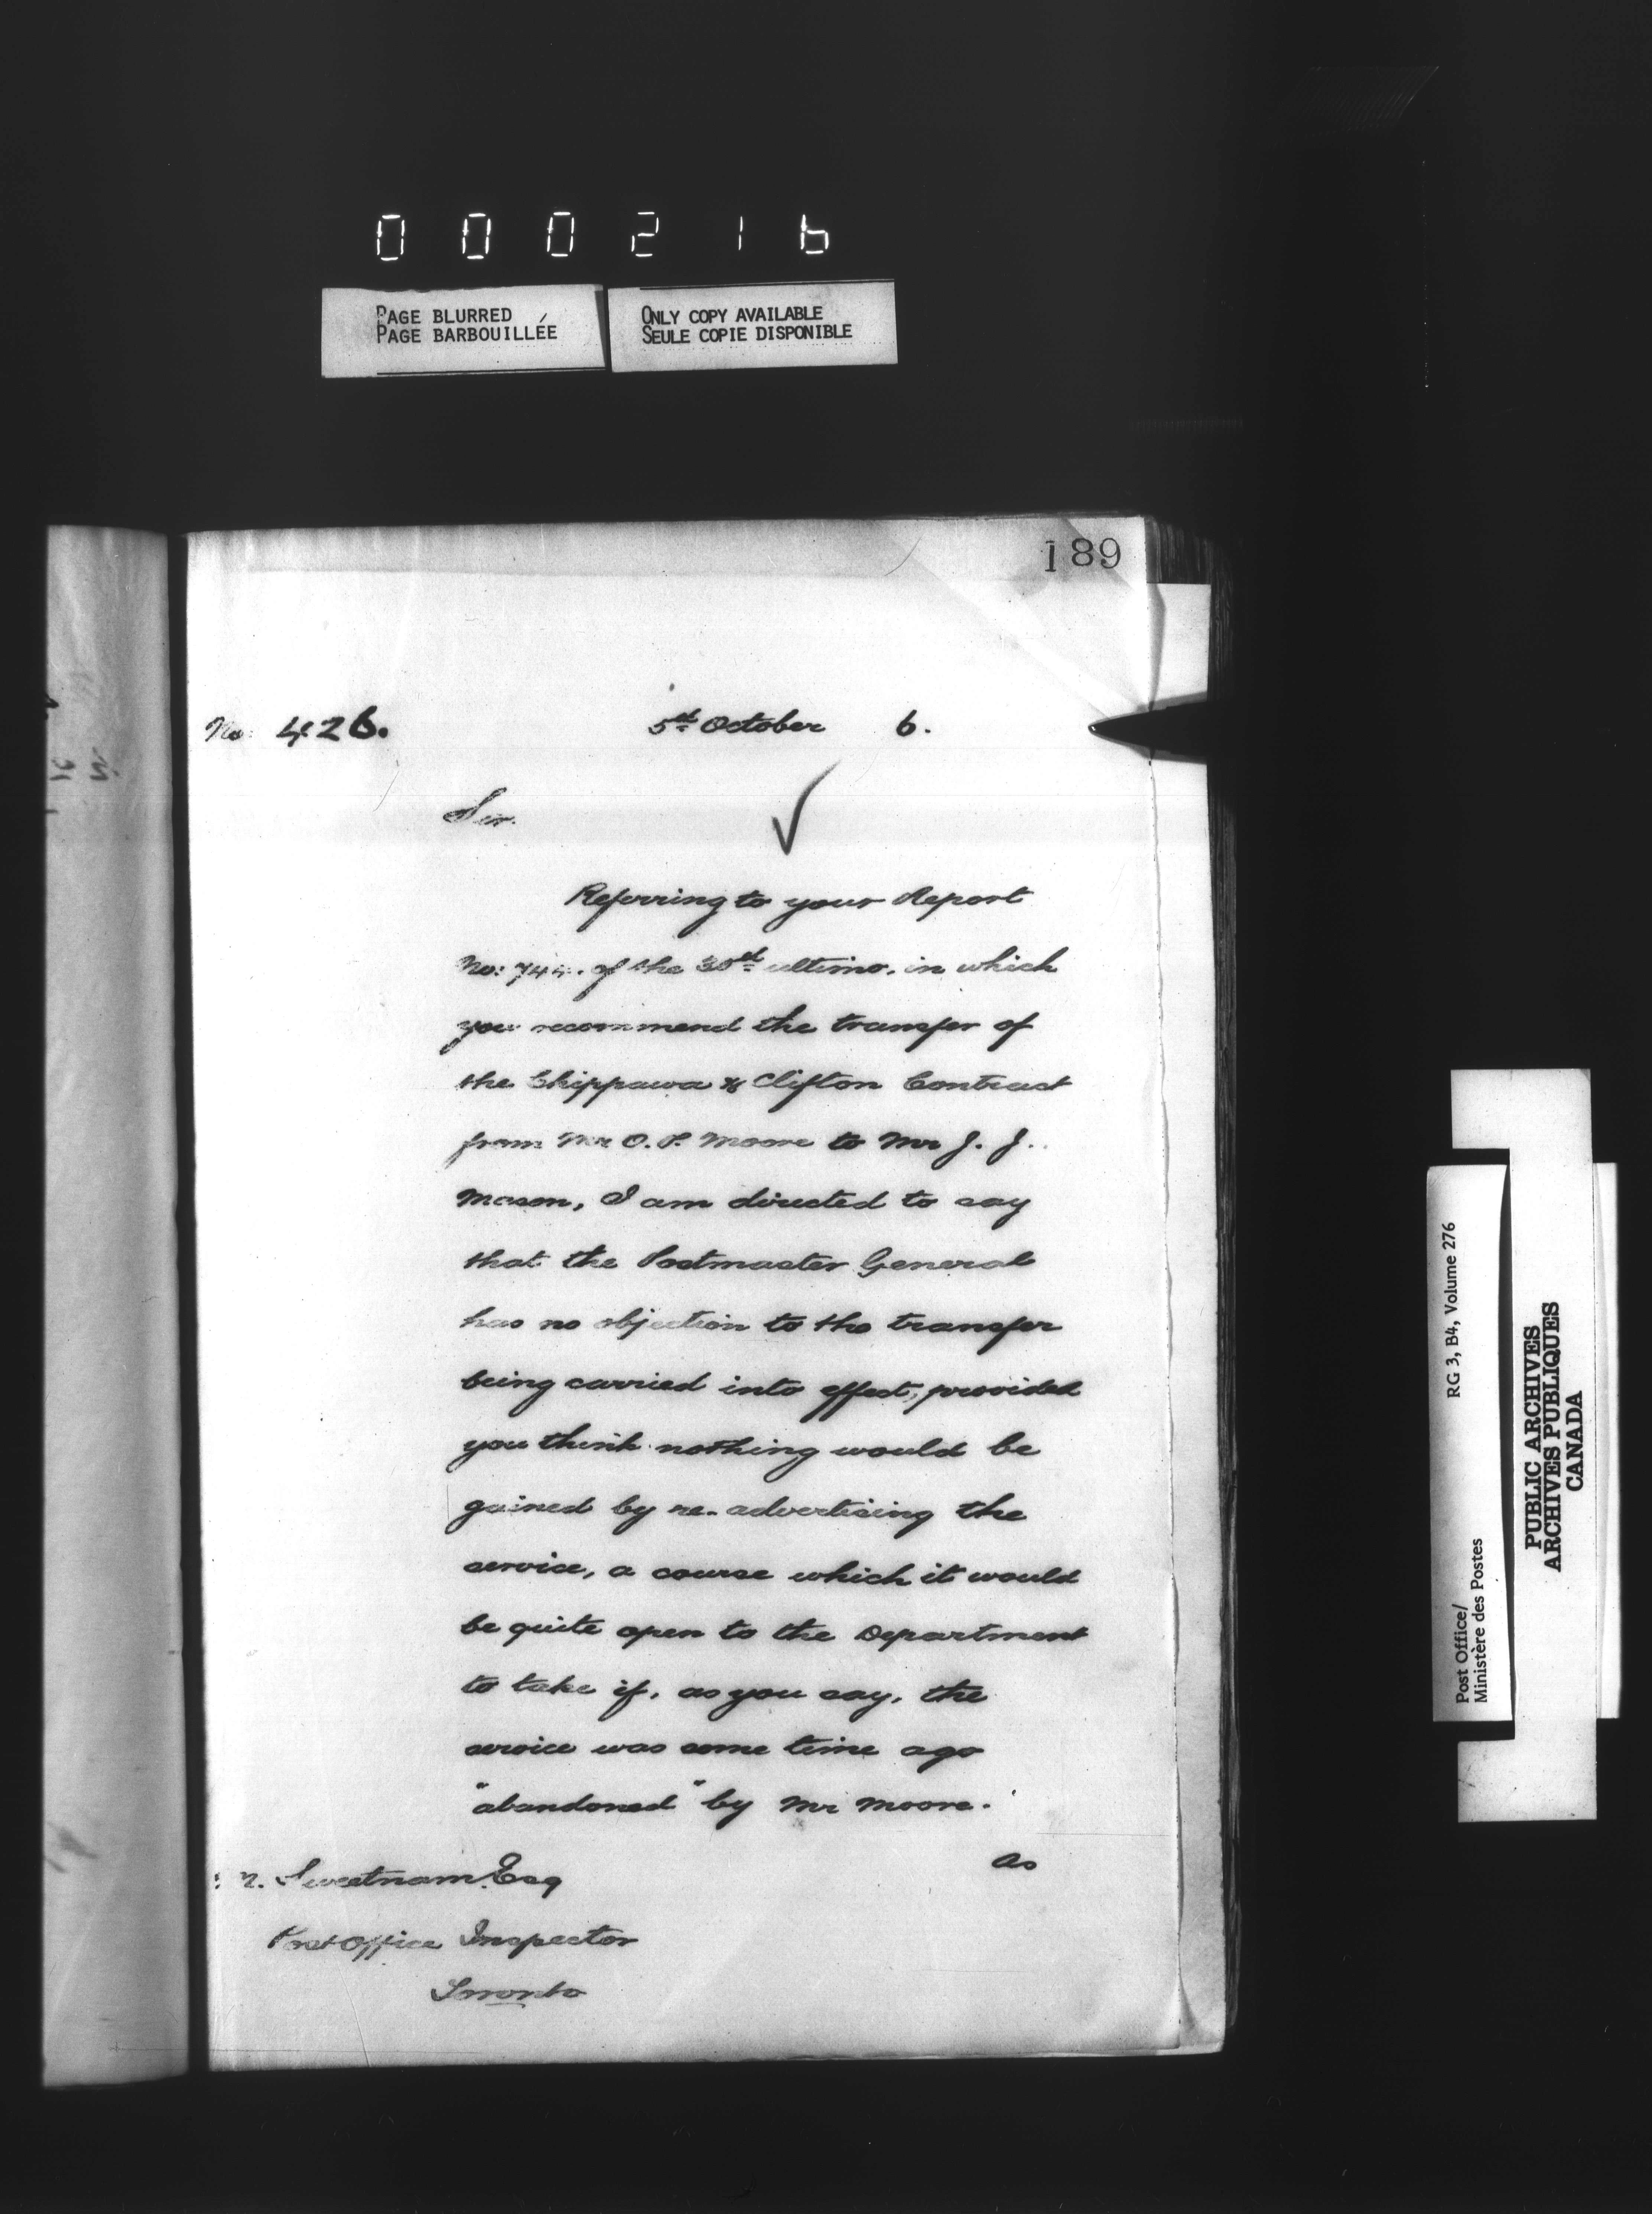 000216
PAGE BLURRED
PAGE BARBOUILLÉE
ONLY COPY AVAILABLE
SEULE COPIE DISPONIBLE
189
No. 426. 5th October 6.
Sir.
Referring to your Report
No: 744. of the 30th ultimo, in which
you recommend the transfer of
the Chippawa & Clifton Contract
from Mr O. P. Moore to Mr J. J.
Mason, I am directed to say
that the Postmaster General
has no objection to the transfer
being carried into effect, provided
you think nothing would be
gained by re-advertising the
service, a course which it would
be quite open to the Department
to take if, as you say, the
service was some time ago
"abandoned" by Mr Moore.
as
Sweetnam Esq
Post Office Inspector
Toronto
Post Office/
Ministère des Postes
RG 3, B4, Volume 276
PUBLIC ARCHIVES
ARCHIVES PUBLIQUES
CANADA